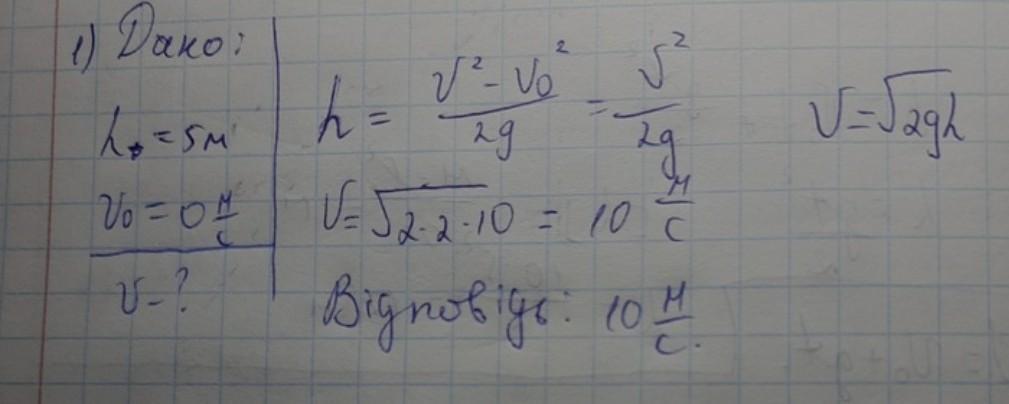 1) Дано:
h = 5м
v₀ = 0 м/с
v - ?
h = (v² - v₀²)/2g = v²/2g
v = √2gh
v = √2·2·10 = 10 м/с
Відповідь: 10 м/с.